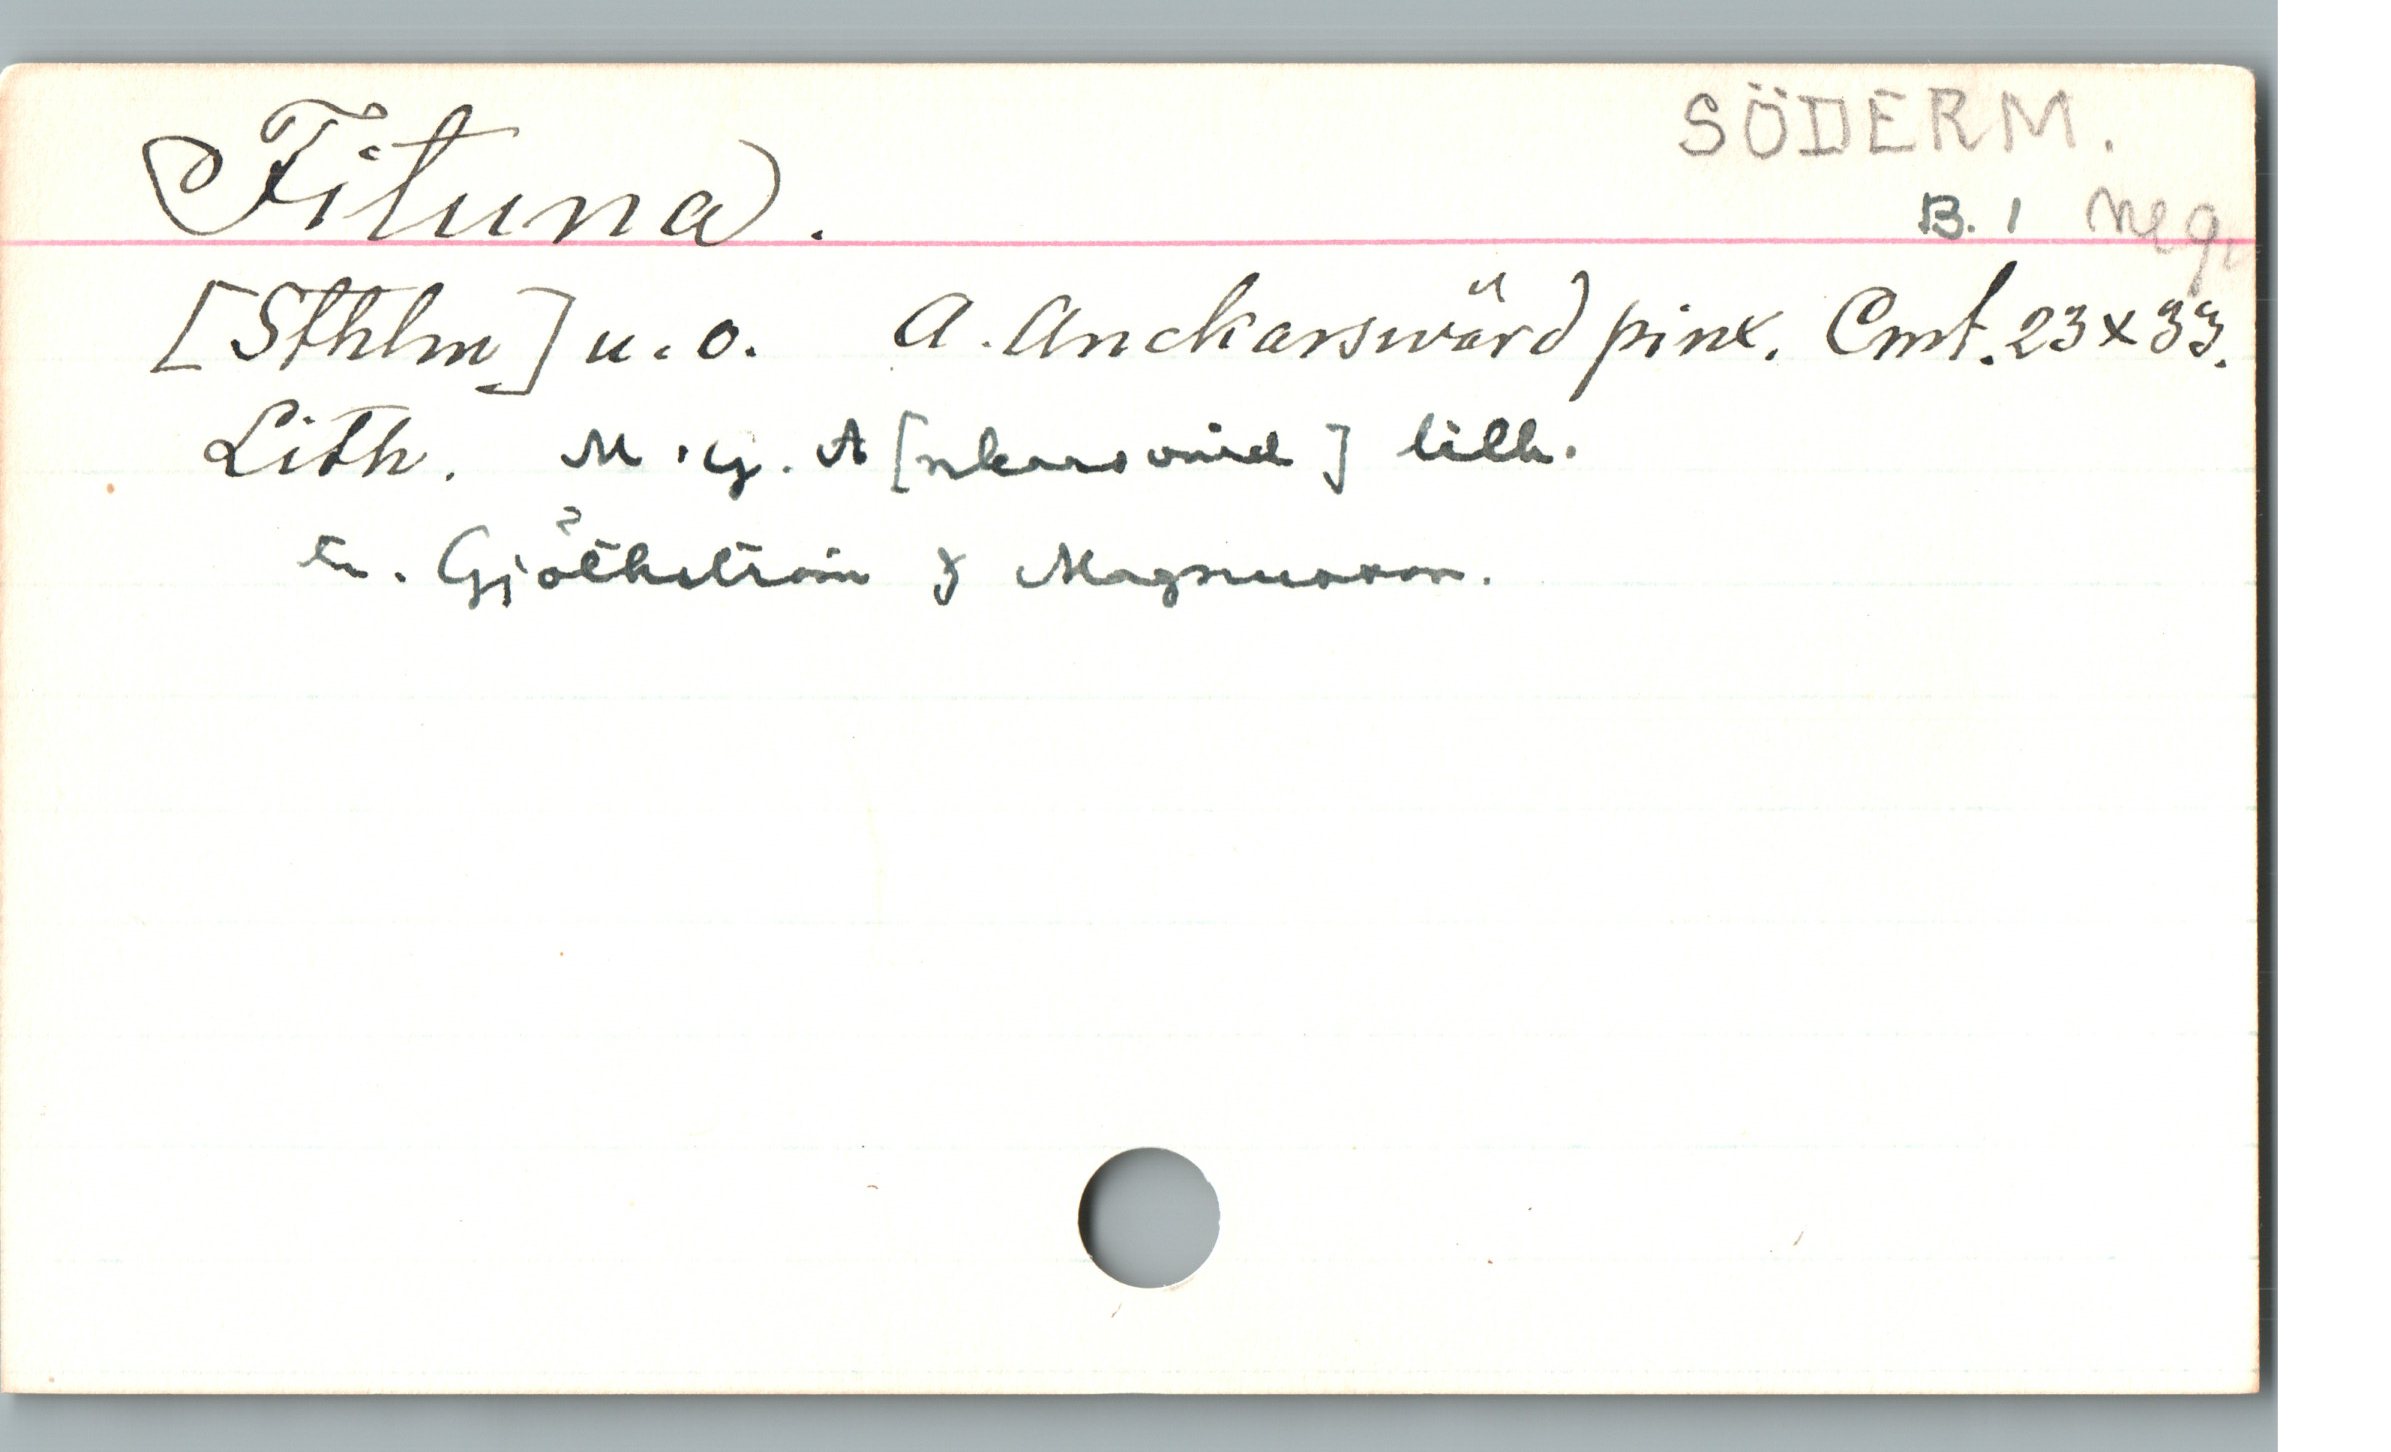 Fituna.
SÖDERM.
B. 1 neg.
[Sthlm] u. o. A. Anckarswärd pinx. Cmt. 23 x 33.
Lith. M. G. A [nkarsvärd] lith.
tr. Gjöthström & Magnusson.